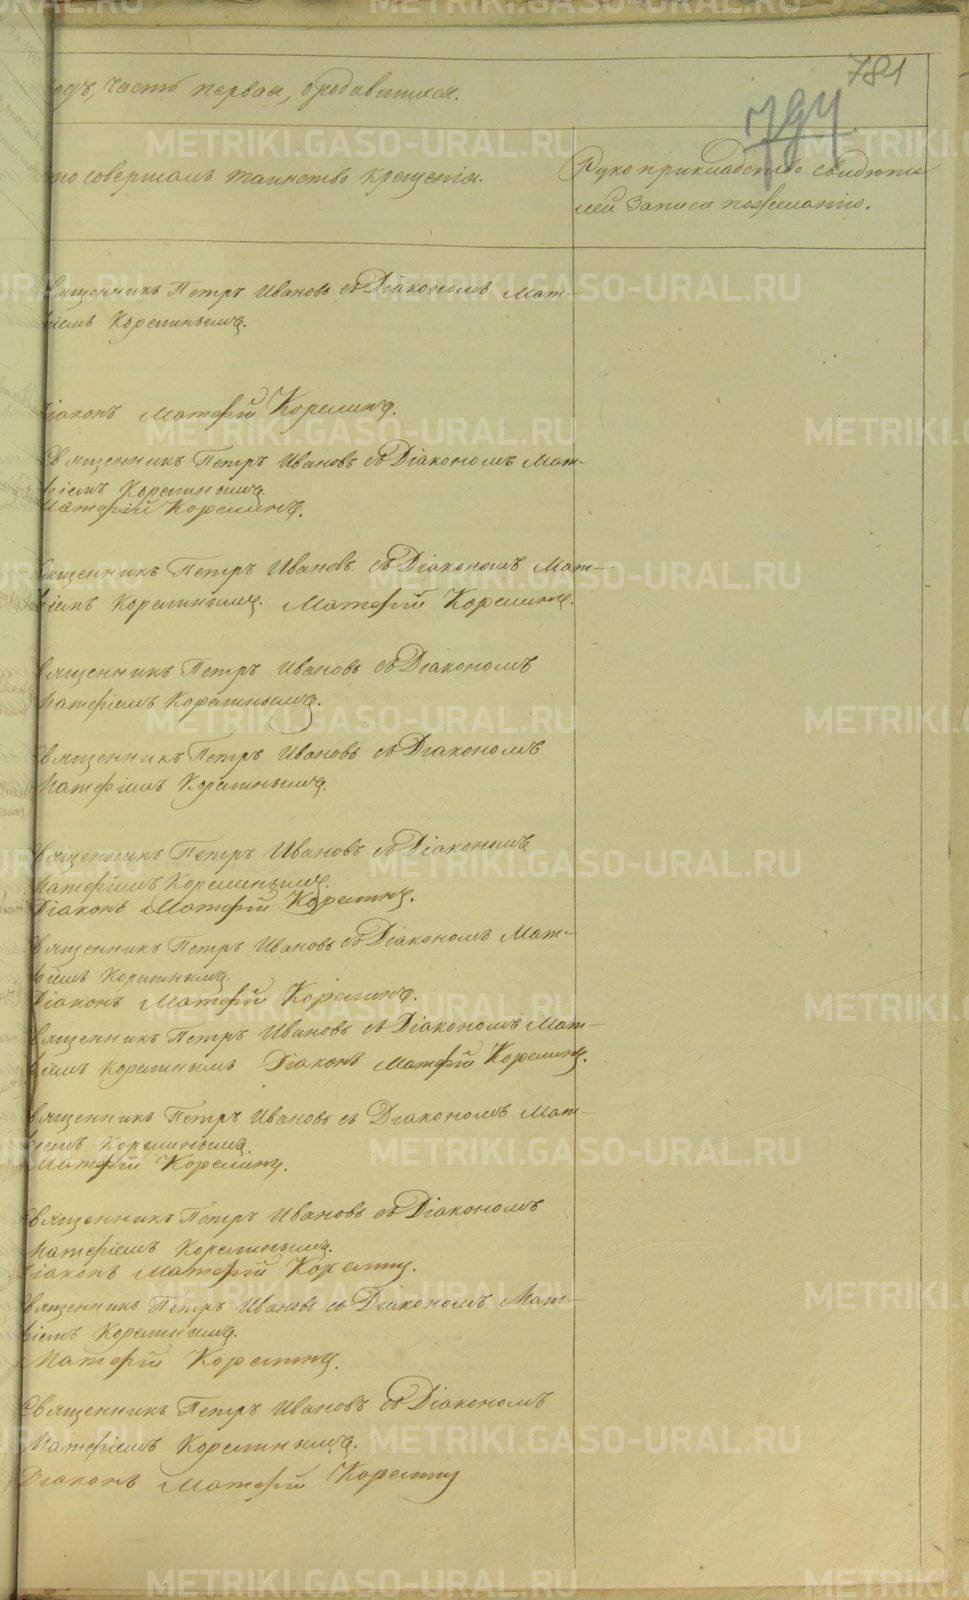 781
794
годъ, часть первая, о родившихся.
Кто совершалъ таинство крещенія.
Рукоприкладство свидѣте-
лей записи по желанію.
Священникъ Петръ Ивановъ съ Діакономъ Мат-
фіемъ Корелинымъ.
Діаконъ Матфій Корелинъ.
Священникъ Петръ Ивановъ съ Діакономъ Мат-
фіемъ Корелинымъ.
Матфій Корелинъ.
Священникъ Петръ Ивановъ съ Діакономъ Мат-
фіемъ Корелинымъ. Матфій Корелинъ.
Священникъ Петръ Ивановъ съ Діакономъ
Матфіемъ Корелинымъ.
Священникъ Петръ Ивановъ съ Діакономъ
Матфіемъ Корелинымъ.
Священникъ Петръ Ивановъ съ Діакономъ
Матфіемъ Корелинымъ.
Діаконъ Матфій Корелинъ.
Священникъ Петръ Ивановъ съ Діакономъ Мат-
фіемъ Корелинымъ.
Діаконъ Матфій Корелинъ.
Священникъ Петръ Ивановъ съ Діакономъ Мат-
фіемъ Корелинымъ Діаконъ Матфій Корелинъ.
Священникъ Петръ Ивановъ съ Діакономъ Мат-
фіемъ Корелинымъ.
Матфій Корелинъ.
Священникъ Петръ Ивановъ съ Діакономъ
Матфіемъ Корелинымъ.
Діаконъ Матфій Корелинъ.
Священникъ Петръ Ивановъ съ Діакономъ Мат-
фіемъ Корелинымъ.
Матфій Корелинъ.
Священникъ Петръ Ивановъ съ Діакономъ
Матфіемъ Корелинымъ.
Діаконъ Матфій Корелинъ
METRIKI.GASO-URAL.RU